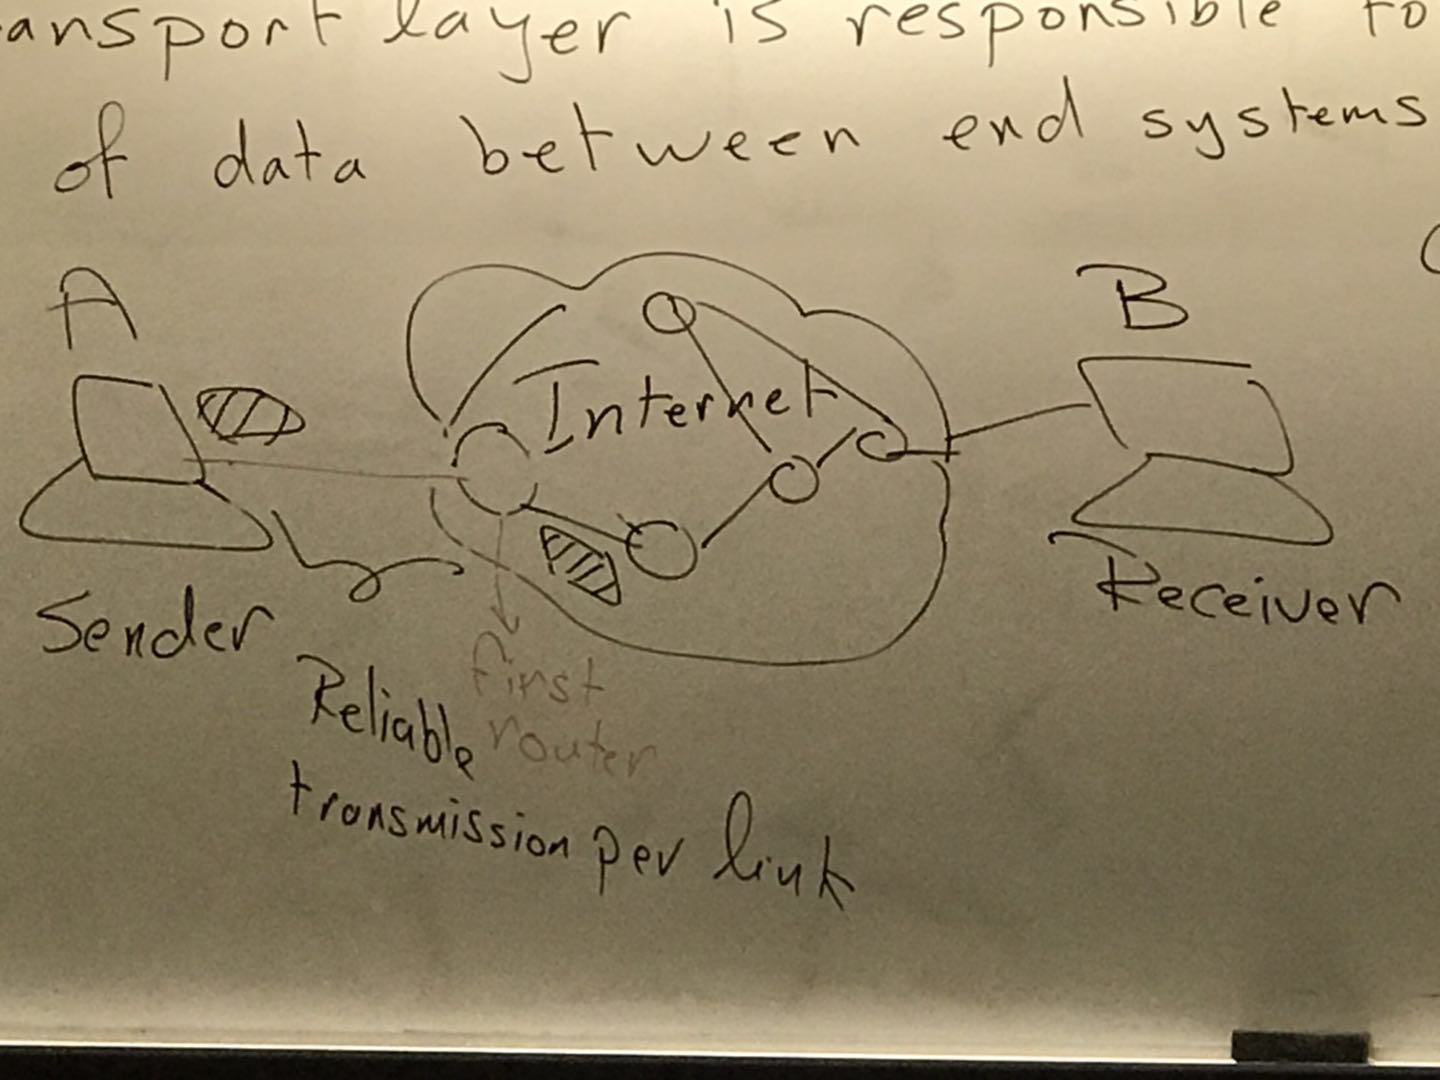 ansport layer is responsible fo
of data between end systems
A
B
Internet
Sender
Receiver
first
router
Reliable
transmission per link